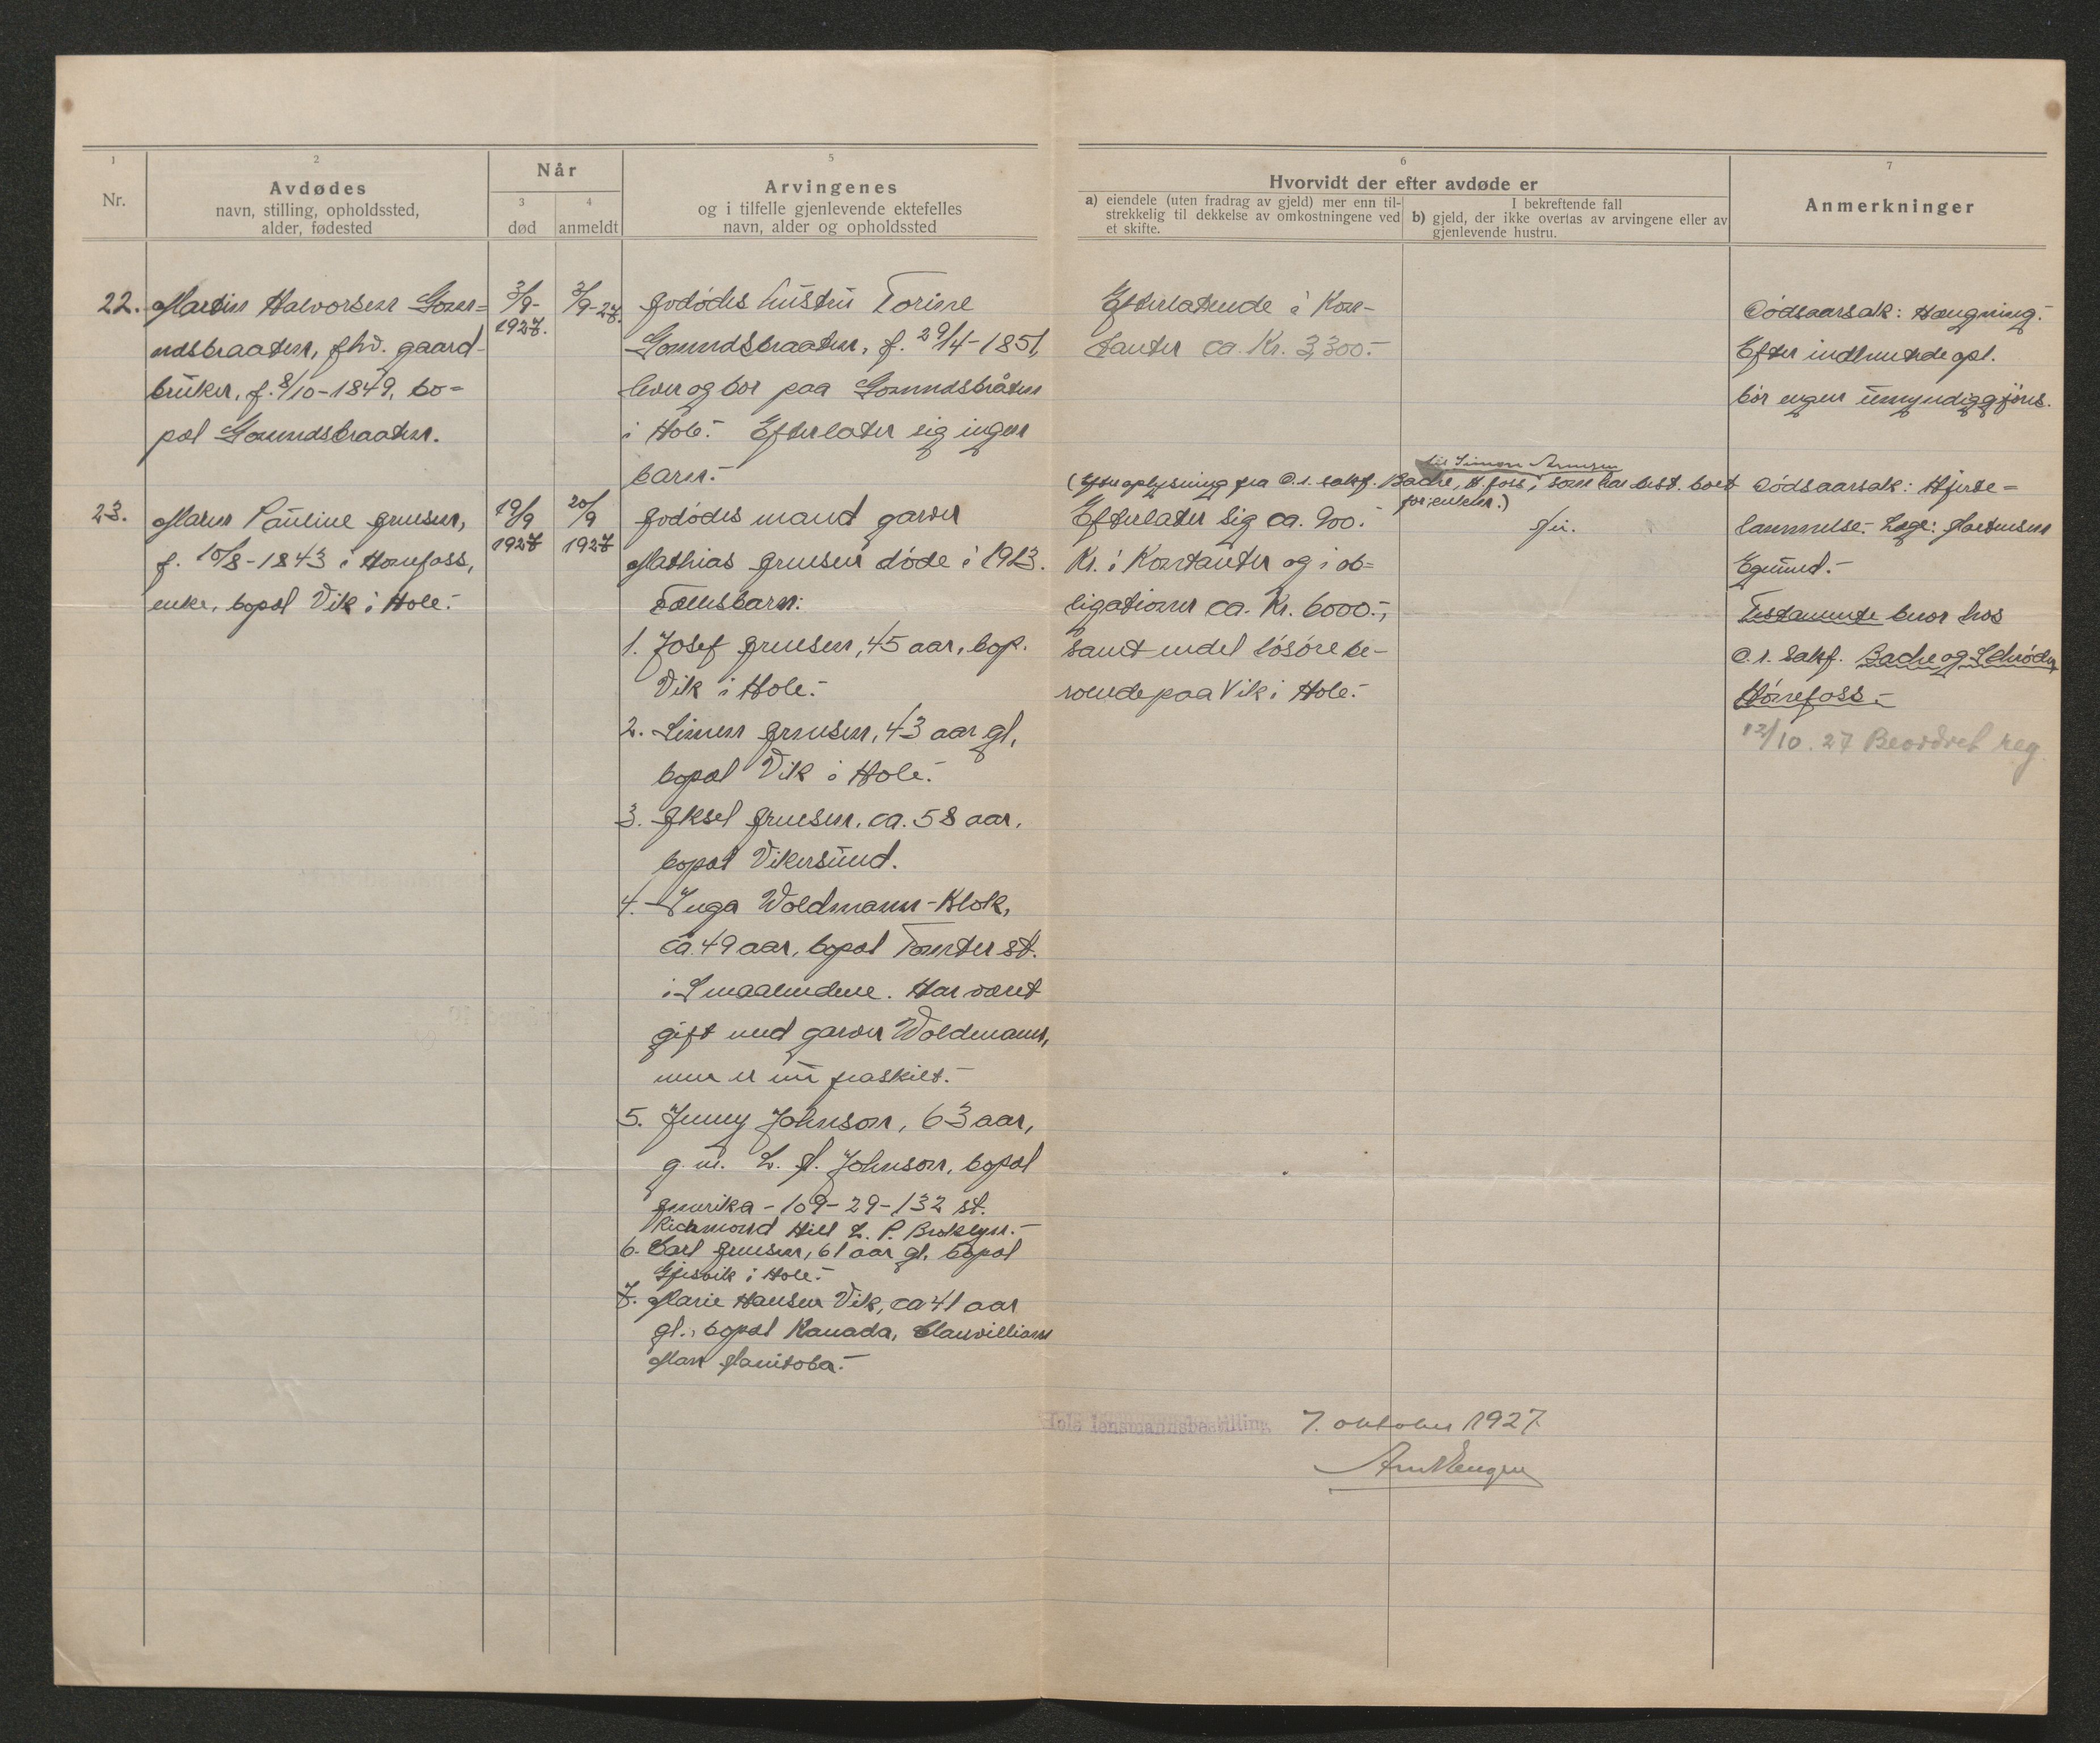 1
Nr.
2
Avdødes
navn, stilling, opholdssted,
alder, fødested
Når
3
død
4
anmeldt
5
Arvingenes
og i tilfelle gjenlevende ektefelles
navn, alder og opholdssted
6
Hvorvidt der efter avdøde er
a) eiendele (uten fradrag av gjeld) mer enn til-
strekkelig til dekkelse av omkostningene ved
et skifte.
I bekreftende fall
b) gjeld, der ikke overtas av arvingene eller av
gjenlevende hustru.
7
Anmerkninger
22.
Martin Halvorsen Gom-
undsbraaten, fhv. gaard-
bruker, f. 8/10-1849, bo-
pæl Gomundsbraaten.
3/9-
1927.
3/9-27.
Avdødes hustru Torine
Gomundsbraaten, f. 29/4-1851,
lever og bor paa Gomundsbråten
i Hole.- Efterlater sig ingen
barn.-
Efterlatende i Kon-
tanter ca. Kr. 3,300.-
Dødsaarsak: Hængning.-
Efter indhentede opl.
bør ingen umyndiggjøres.
23.
Maren Pauline Arnesen,
f. 10/8-1843 i Hønefoss,
enke, bopæl Vik i Hole.-
19/9
1927
20/9
1927
Avdødes mand garver
Mathias Arnesen døde i 1913.
Fællesbarn:
1. Josef Arnesen, 45 aar, bop.
Vik i Hole.-
2. Simen Arnesen, 43 aar gl,
bopæl Vik i Hole.-
3. Aksel Arnesen, ca. 58 aar,
bopæl Vikersund.
4. Inga Woldmann-Klok,
ca. 49 aar, bopæl Tomter st.
i Smaalendene. Har været
gift med garver Woldmann,
men er nu fraskilt.-
5. Jenny Johnson, 63 aar,
g. m. L. A. Johnson, bopæl
Amerika - 109-29-132 st.
Richmond Hill L. P. Broklyn.-
6. Carl Arnesen, 61 aar gl. bopæl
Gjesvik i Hole.-
7. Marie Hansen Vik, ca 41 aar
gl., bopæl Kanada, Clanwilliam
Man Manitoba.-
til Simon Arnesen
(Efter oplysning fra O.r. sakf. Bache, H.foss, som har best. boet
for enken.)
Efterlater sig ca. 900.-
Kr. i Kontanter og i ob-
ligationer ca. Kr. 6000.-,
samt endel løsøre be-
roende paa Vik i Hole.-
Nei.
Dødsaarsak: Hjerte-
lammelse.- Læge: Martinsen
Egeund.-
Testamente beror hos
O.r. Sakf. Bache og Schrøder
Hønefoss.-
12/10. 27 Beordret reg.
Hole lensmannsbestilling 7. oktober 1927.